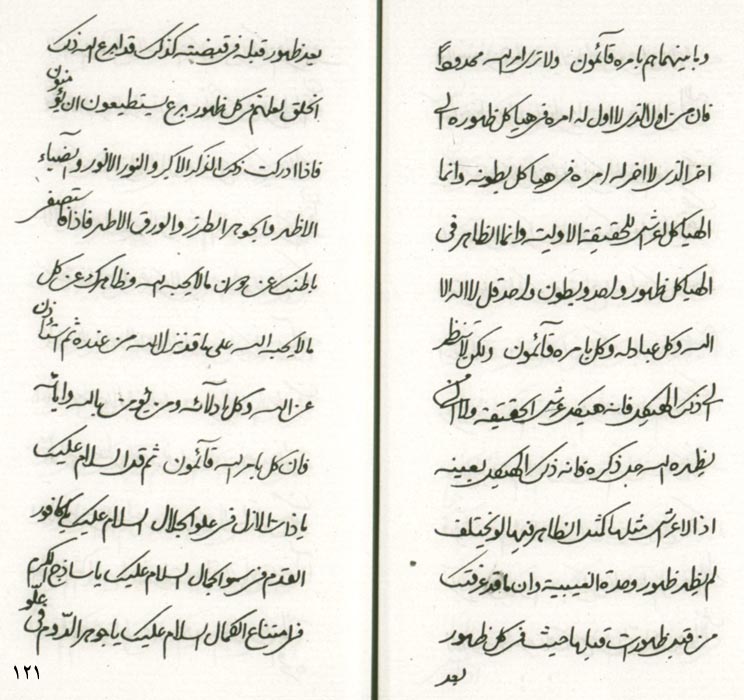 وما بينهما هم بامره قآئمون ولا ترى امر الله محدودا
فان من اول الذى لا اول له امره فى هياكل ظهوره الى
اخر الذى لا اخر له امره فى هياكل بطونه وانما
الهياكل اعرش للحقيقة الاولية وانما الظاهر فى
الهياكل ظهور واحد وبطون واحد قل لا اله الا
الله وكل عباد له وكل بامره قآئمون ولكن لا تنظر
الى ذلك الهيكل فانه هيكل عرش الحقيقة ولا من
يظهره الله جل ذكره فانه ذلك الهيكل بعينه
اذ الاعرش مثلها كمثل الظاهر فيها لو يختلف
لم يظهر ظهور وحدة الغيبية وان ما قد عرفت
من قبل ظهورات قبلها حيث فى كل ظهور
بعد
بعد ظهور قبله فى قبضته كذلك قد ابدع الله ذلك
الخلق لعلهم فى كل ظهور بدع يستطيعون ان يؤمنون
فاذا ادركت ذلك الذكر الاكبر والنور الانور والضياء
الاظهر والجوهر الطرز والورق الاطهر فاذا فاستصف
باطنك عن دون ما لا يحبه الله وظاهرك عن كل
ما لا يحبه الله على ما قد نزل الله من عنده ثم استأذن
عن الله وكل ادلآئه ومن يؤمن بالله واياته
فان كل بامر الله قآئمون ثم قل السلام عليك
يا ذات الازل فى علو الجلال السلام عليك يا كافور
القدم فى سمو الجمال السلام عليك يا ساذج الكرم
فى امتناع الكمال السلام عليك يا جوهر الدوم فى علو
١٢١